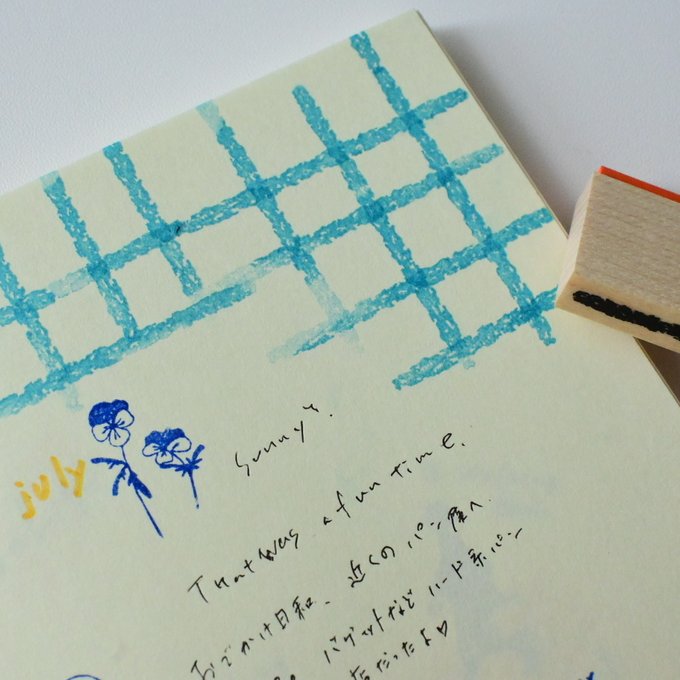 july
Sunny".
That was a fun time.
おでかけ日和、近くのパン屋へ
バゲットなどハード系パン
だったよ♡